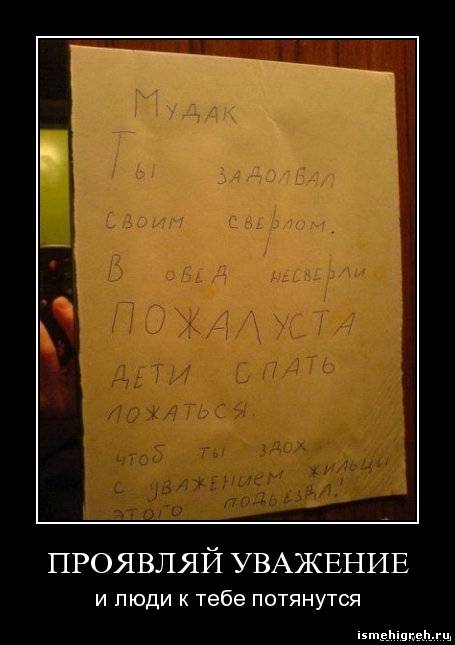 Мудак
Ты задолбал
своим сверлом.
В обед несверли
ПОЖАЛУСТА
дети спать
ложаться.
чтоб ты здох
с уважением жильцы
этого подьезда!
ПРОЯВЛЯЙ УВАЖЕНИЕ
и люди к тебе потянутся
ismehigreh.ru